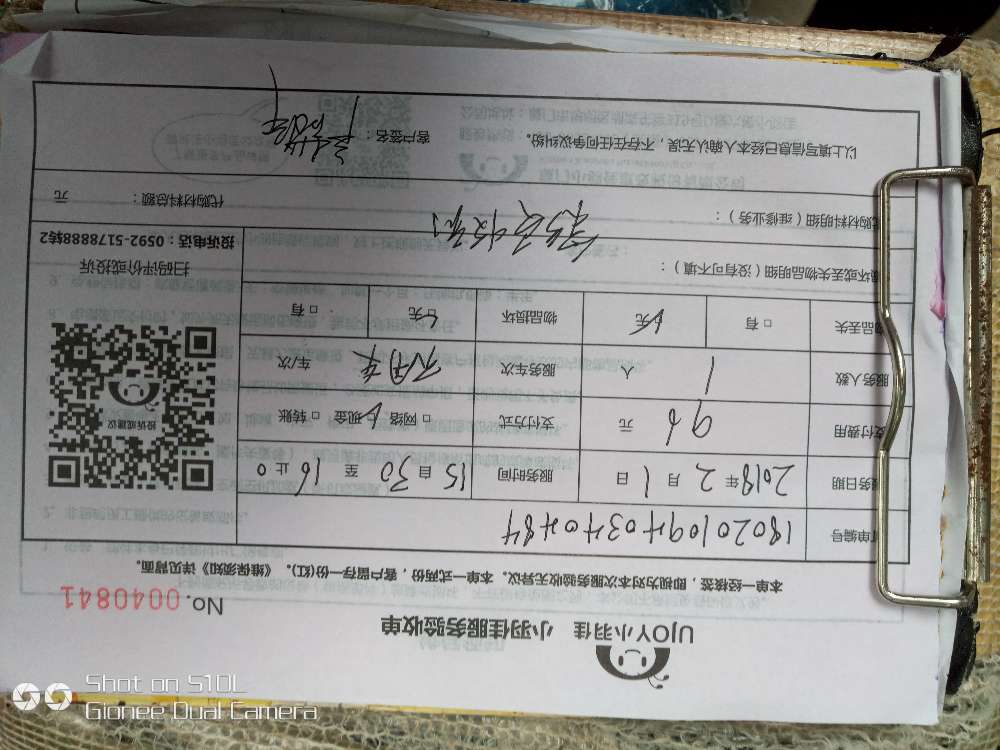 UJOY小羽佳 小羽佳服务验收单
No. 0040841
本单一经核签，即视为对本次服务验收无异议。本单一式两份，客户留存一份(红)。《维保须知》详见背面。
订单编号 18020109403404484
服务日期 2018年2月1日 服务时间 15自30至16止0
支付费用 96元 支付方式 □网络 □现金 □转账
服务人数 1人 服务车次 不用车 车/次
物品丢失 □有 □无 物品损坏 □有 □无
损坏或丢失物品明细（没有可不填）：
扫码评价或投诉
投诉电话：0592-5178888转2
投诉或建议
代购材料明细（维修业务）：
代购材料总额： 元
以上填写信息已经本人确认无误，不存在任何争议纠纷。
客户签名：
Shot on S10L
Gionee Dual Camera